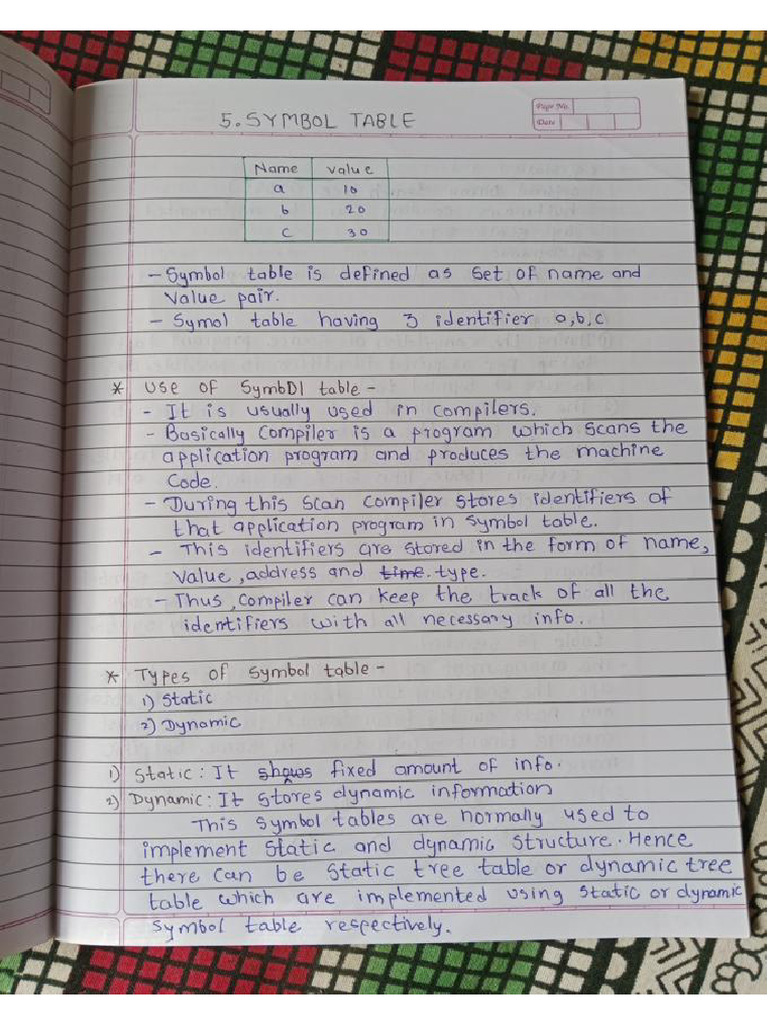 5. SYMBOL TABLE
Page No.
Date
Name value
a 10
b 20
c 30
- Symbol table is defined as set of name and
value pair.
- Symol table having 3 identifier a,b,c
* Use of Symbol table -
- It is usually used in compilers.
- Basically compiler is a program which scans the
application program and produces the machine
code.
- During this scan compiler stores identifiers of
that application program in symbol table.
- This identifiers are stored in the form of name,
value, address and time. type.
- Thus, compiler can keep the track of all the
identifiers with all necessary info.
* Types of symbol table -
1) Static
2) Dynamic
1) Static: It shows fixed amount of info.
2) Dynamic: It stores dynamic information
This symbol tables are normally used to
implement static and dynamic structure. Hence
there can be static tree table or dynamic tree
table which are implemented using static or dynamic
symbol table respectively.